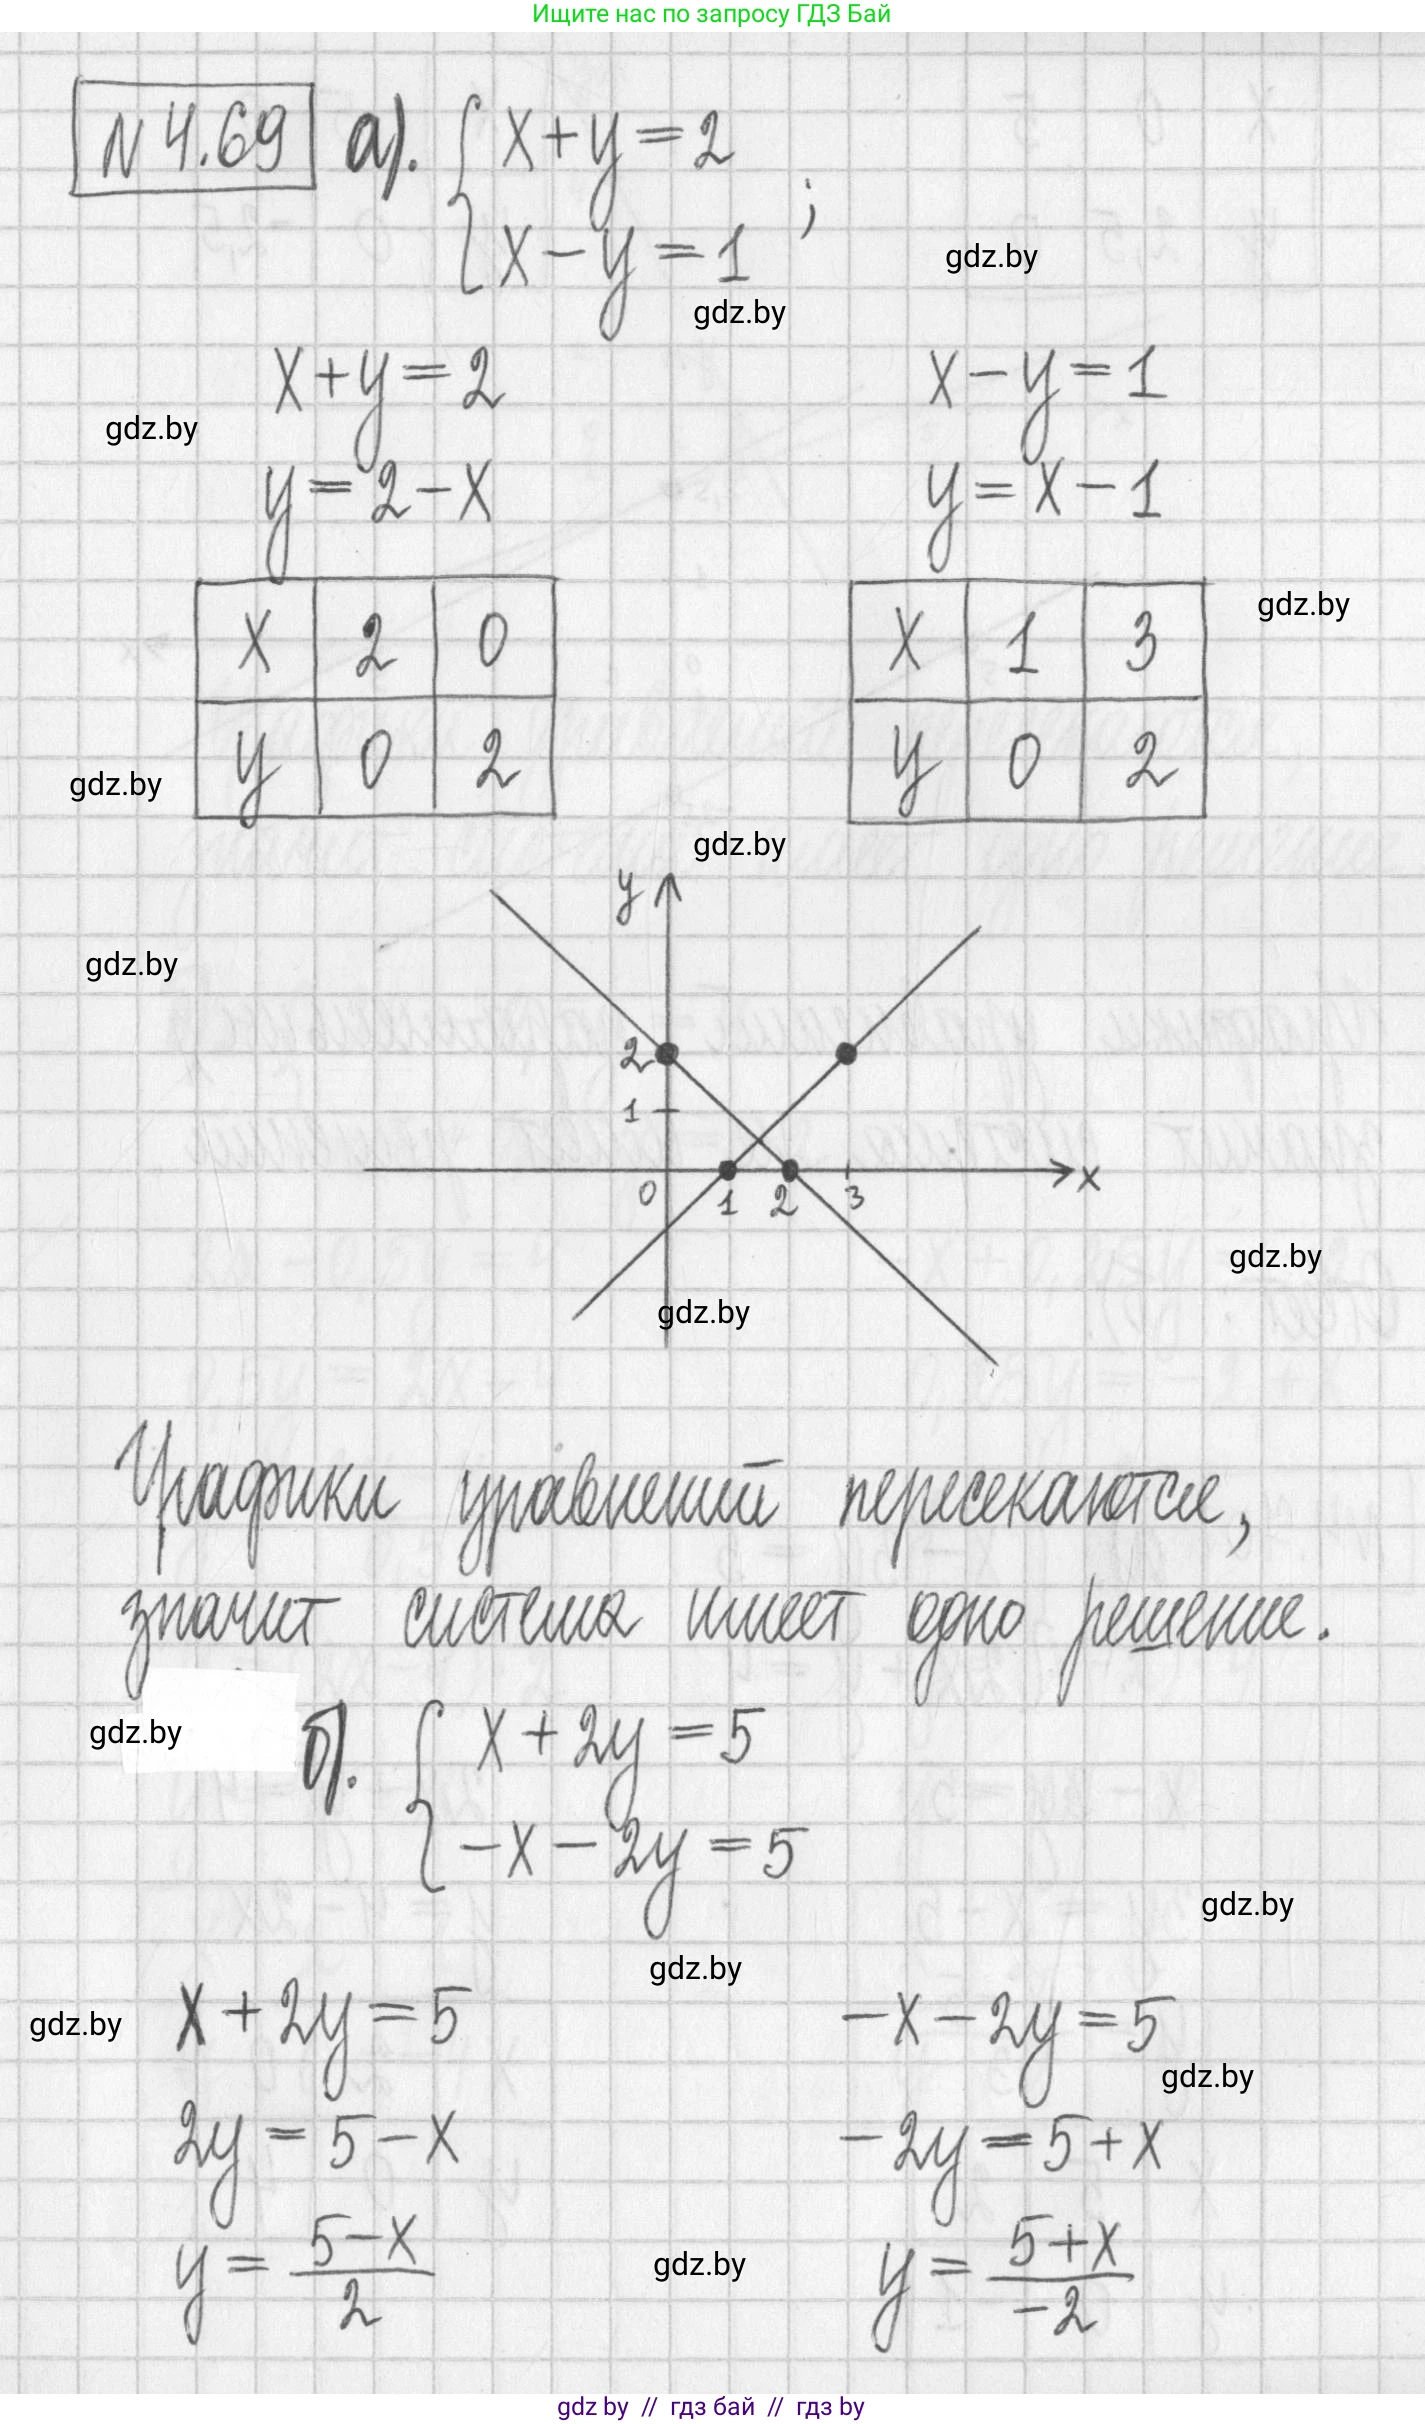 Ищите нас по запросу ГДЗ Бай
N 4.69 а). { x+y=2
x−y=1 ;
gdz.by
gdz.by
x+y=2 x−y=1
gdz.by
y=2−x y=x−1
x 2 0 x 1 3
gdz.by
y 0 2 y 0 2
gdz.by
gdz.by
y
gdz.by
2
1
0 1 2 3 x
gdz.by
gdz.by
Графики уравнений пересекаются,
значит система имеет одно решение.
gdz.by
б). { x+2y=5
−x−2y=5
gdz.by
gdz.by
gdz.by
x+2y=5 −x−2y=5
gdz.by
2y=5−x −2y=5+x
y=(5−x)/2 y=(5+x)/−2
gdz.by
gdz.by // гдз бай // гдз by